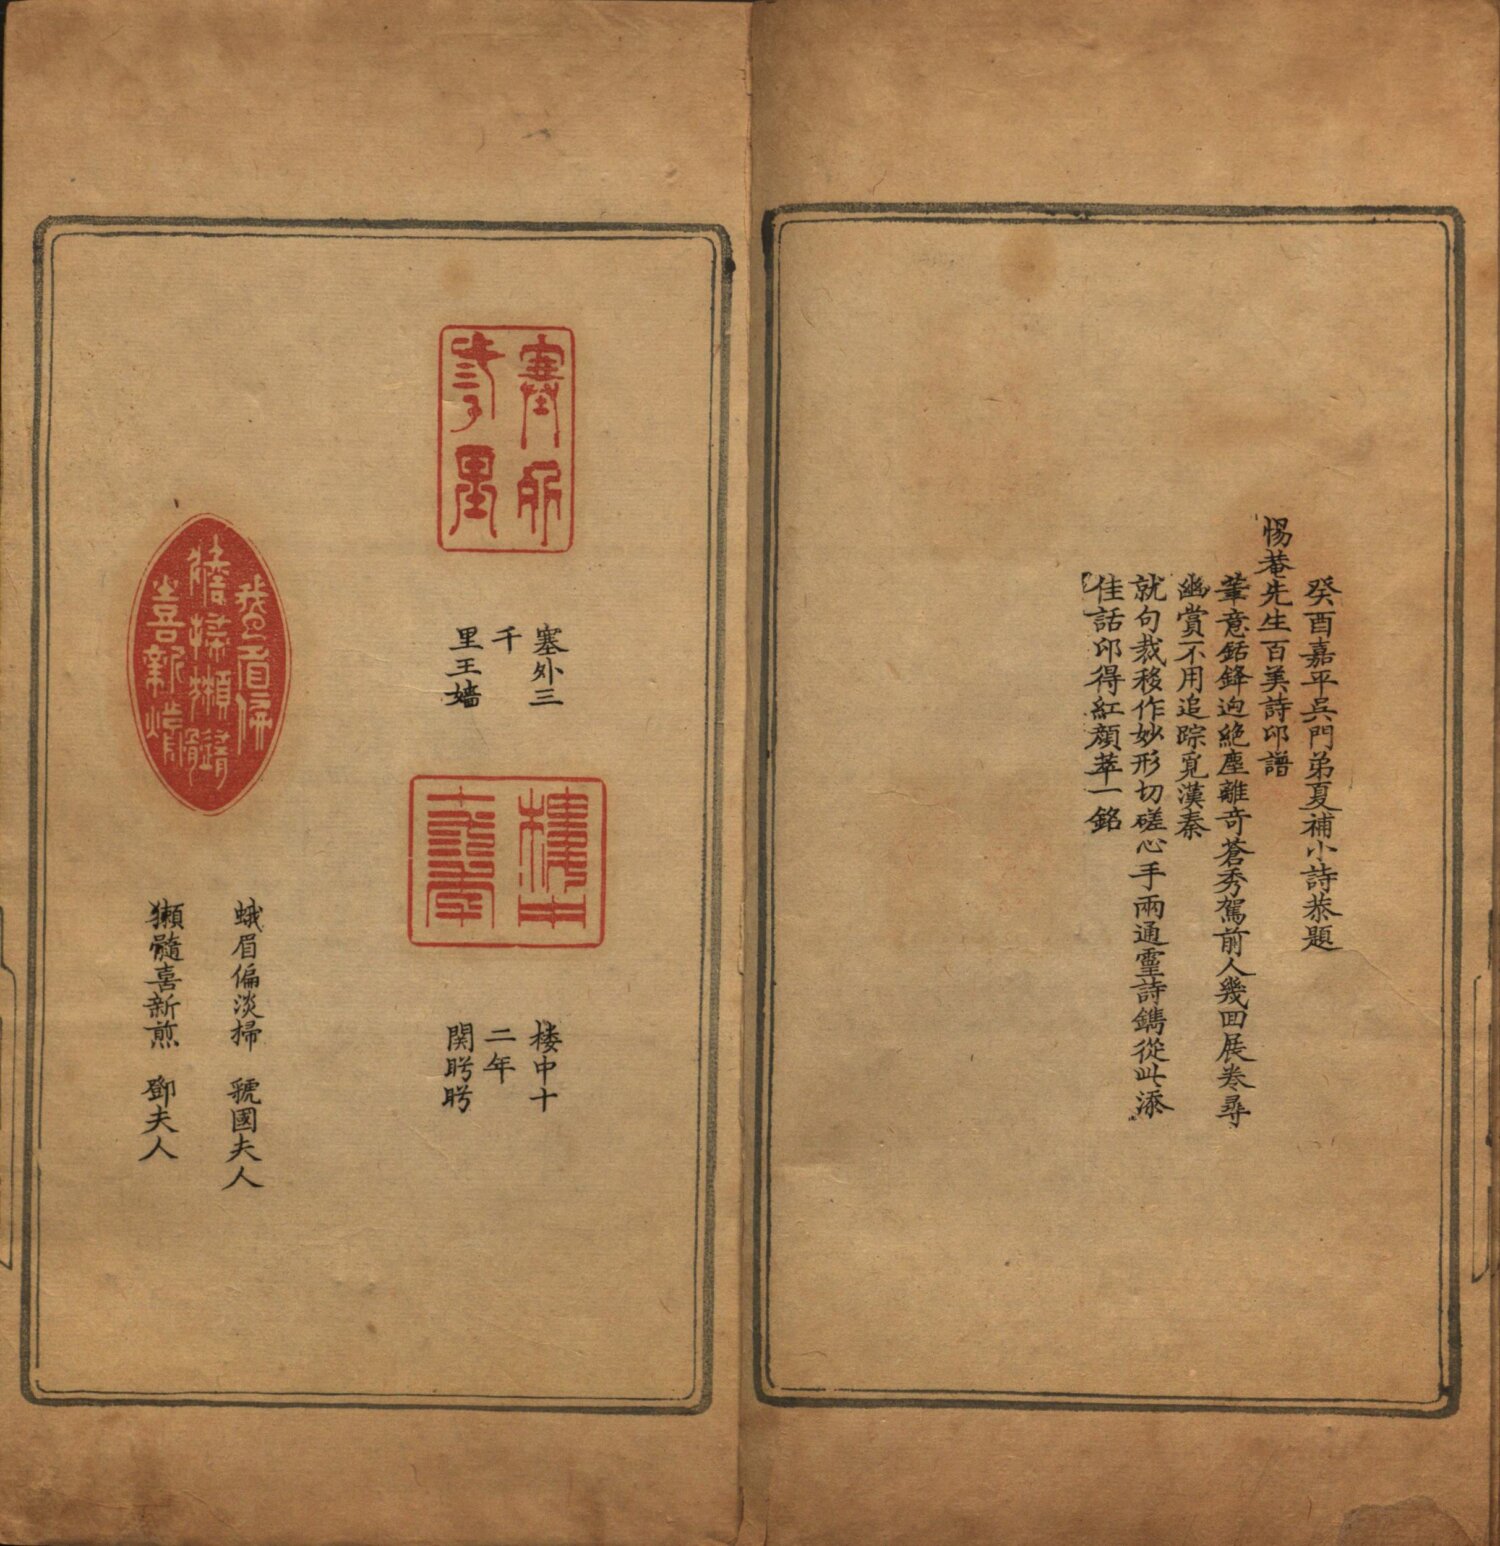 癸酉嘉平吳門弟夏補小詩恭題
惕菴先生百美詩印譜
筆意銛鋒迥絕塵離奇蒼秀駕前人幾回展卷尋
幽賞不用追踪覓漢秦
就句裁移作妙形切磋心手兩通靈詩鐫從此添
佳話印得紅顏萃一銘
塞外
三千里
塞外三
千
里王嬙
樓中
十二年
楼中十
二年
関盻盻
蛾眉偏
淡掃獺髓
喜新煎
蛾眉偏淡掃 虢國夫人
獺髓喜新煎 鄧夫人